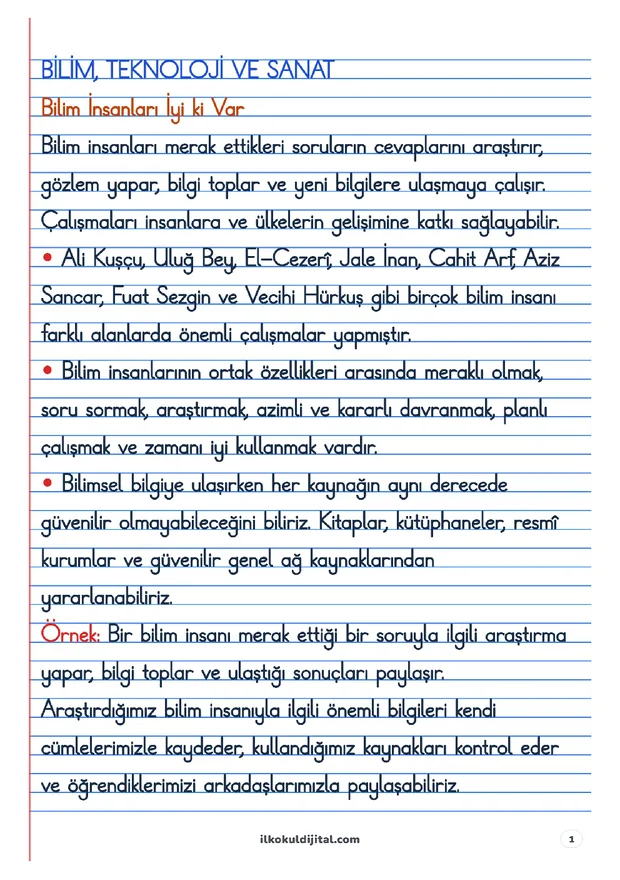 BİLİM, TEKNOLOJİ VE SANAT
Bilim İnsanları İyi ki Var
Bilim insanları merak ettikleri soruların cevaplarını araştırır,
gözlem yapar, bilgi toplar ve yeni bilgilere ulaşmaya çalışır.
Çalışmaları insanlara ve ülkelerin gelişimine katkı sağlayabilir.
• Ali Kuşçu, Uluğ Bey, El-Cezerî, Jale İnan, Cahit Arf, Aziz
Sancar, Fuat Sezgin ve Vecihi Hürkuş gibi birçok bilim insanı
farklı alanlarda önemli çalışmalar yapmıştır.
• Bilim insanlarının ortak özellikleri arasında meraklı olmak,
soru sormak, araştırmak, azimli ve kararlı davranmak, planlı
çalışmak ve zamanı iyi kullanmak vardır.
• Bilimsel bilgiye ulaşırken her kaynağın aynı derecede
güvenilir olmayabileceğini biliriz. Kitaplar, kütüphaneler, resmî
kurumlar ve güvenilir genel ağ kaynaklarından
yararlanabiliriz.
Örnek: Bir bilim insanı merak ettiği bir soruyla ilgili araştırma
yapar, bilgi toplar ve ulaştığı sonuçları paylaşır.
Araştırdığımız bilim insanıyla ilgili önemli bilgileri kendi
cümlelerimizle kaydeder, kullandığımız kaynakları kontrol eder
ve öğrendiklerimizi arkadaşlarımızla paylaşabiliriz.
ilkokuldijital.com
1